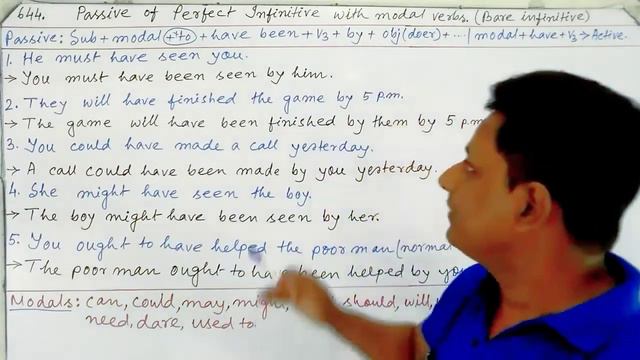 644. Passive of Perfect Infinitive with modal verbs. (Bare infinitive)
Passive: Sub + modal (+to) + have been + V3 + by + obj (doer) + ....| modal + have + V3 → Active.
1. He must have seen you.
→ You must have been seen by him.
2. They will have finished the game by 5 p.m.
→ The game will have been finished by them by 5 p.m
3. You could have made a call yesterday.
→ A call could have been made by you yesterday.
4. She might have seen the boy.
→ The boy might have been seen by her.
5. You ought to have helped the poor man
→ The poor man ought to have been helped by
Modals: can, could, may, might, should, will,
need, dare, used to.